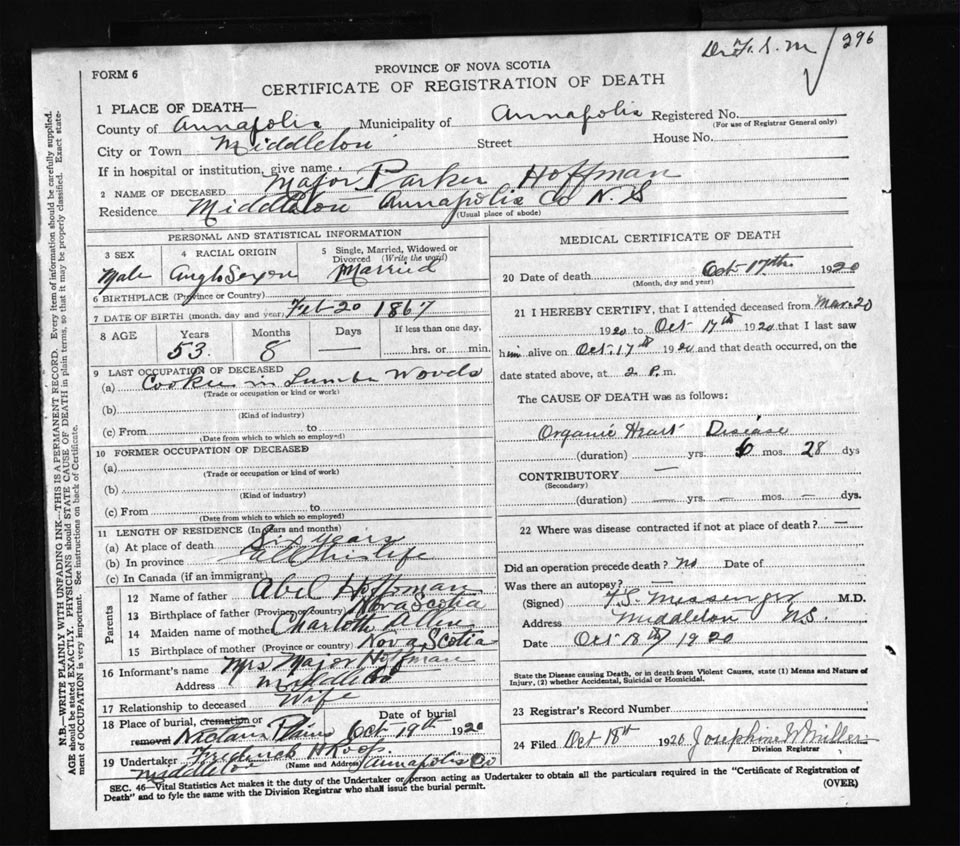 Dr F. S. M 296
FORM 6
PROVINCE OF NOVA SCOTIA
CERTIFICATE OF REGISTRATION OF DEATH
1 PLACE OF DEATH—
County of Annapolis Municipality of Annapolis Registered No.
(For use of Registrar General only)
City or Town Middleton Street House No.
If in hospital or institution, give name
2 NAME OF DECEASED Major Parker Hoffman
Residence Middleton Annapolis Co N. S
(Usual place of abode)
PERSONAL AND STATISTICAL INFORMATION
3 SEX 4 RACIAL ORIGIN 5 Single, Married, Widowed or Divorced (Write the word)
Male Anglo Sexon Married
6 BIRTHPLACE (Province or Country)
7 DATE OF BIRTH (month, day and year) Feb 20 1867
8 AGE Years Months Days If less than one day,
53 8 — hrs. or min.
9 LAST OCCUPATION OF DECEASED
(a) Cookie in Lumber Woods
(Trade or occupation or kind or work)
(b)
(Kind of industry)
(c) From to
(Date from which to which so employed)
10 FORMER OCCUPATION OF DECEASED
(a)
(Trade or occupation or kind of work)
(b)
(Kind of industry)
(c) From to
(Date from which to which so employed)
11 LENGTH OF RESIDENCE (In years and months)
(a) At place of death Six years
(b) In province all his life
(c) In Canada (if an immigrant)
Parents
12 Name of father Abel Hoffman
13 Birthplace of father (Province or country) Nova Scotia
14 Maiden name of mother Charlotte Allen
15 Birthplace of mother (Province or country) Nova Scotia
16 Informant's name Mrs Major Hoffman
Address Middleton
17 Relationship to deceased Wife
18 Place of burial, cremation or Date of burial
removal Plains Oct 19th 1920
19 Undertaker
(Name and Address)
Middleton Annapolis Co
MEDICAL CERTIFICATE OF DEATH
20 Date of death Oct 17th 1920
(Month, day and year)
21 I HEREBY CERTIFY, that I attended deceased from Mar. 20
1920 to Oct 17th 1920 that I last saw
him alive on Oct. 17th 1920 and that death occurred, on the
date stated above, at 2 P. m.
The CAUSE OF DEATH was as follows:
Organic Heart Disease
(duration) yrs. 6 mos. 28 dys
CONTRIBUTORY —
(Secondary)
(duration) — yrs. — mos. — dys.
22 Where was disease contracted if not at place of death? —
Did an operation precede death? No Date of
Was there an autopsy? —
(Signed) F. S. Messenger M.D.
Address Middleton N.S.
Date Oct 18th 1920
State the Disease causing Death, or in death from Violent Causes, state (1) Means and Nature of
Injury, (2) whether Accidental, Suicidal or Homicidal.
23 Registrar's Record Number
24 Filed Oct 18th 1920 Josephine W Miller
Division Registrar
SEC. 46—Vital Statistics Act makes it the duty of the Undertaker or person acting as Undertaker to obtain all the particulars required in the "Certificate of Registration of
Death" and to fyle the same with the Division Registrar who shall issue the burial permit. (OVER)
N.B.—WRITE PLAINLY WITH UNFADING INK—THIS IS A PERMANENT RECORD. Every item of information should be carefully supplied.
AGE should be stated EXACTLY. PHYSICIANS should STATE CAUSE OF DEATH in plain terms, so that it may be properly classified. Exact state-
ment of OCCUPATION is very important. See instructions on back of Certificate.